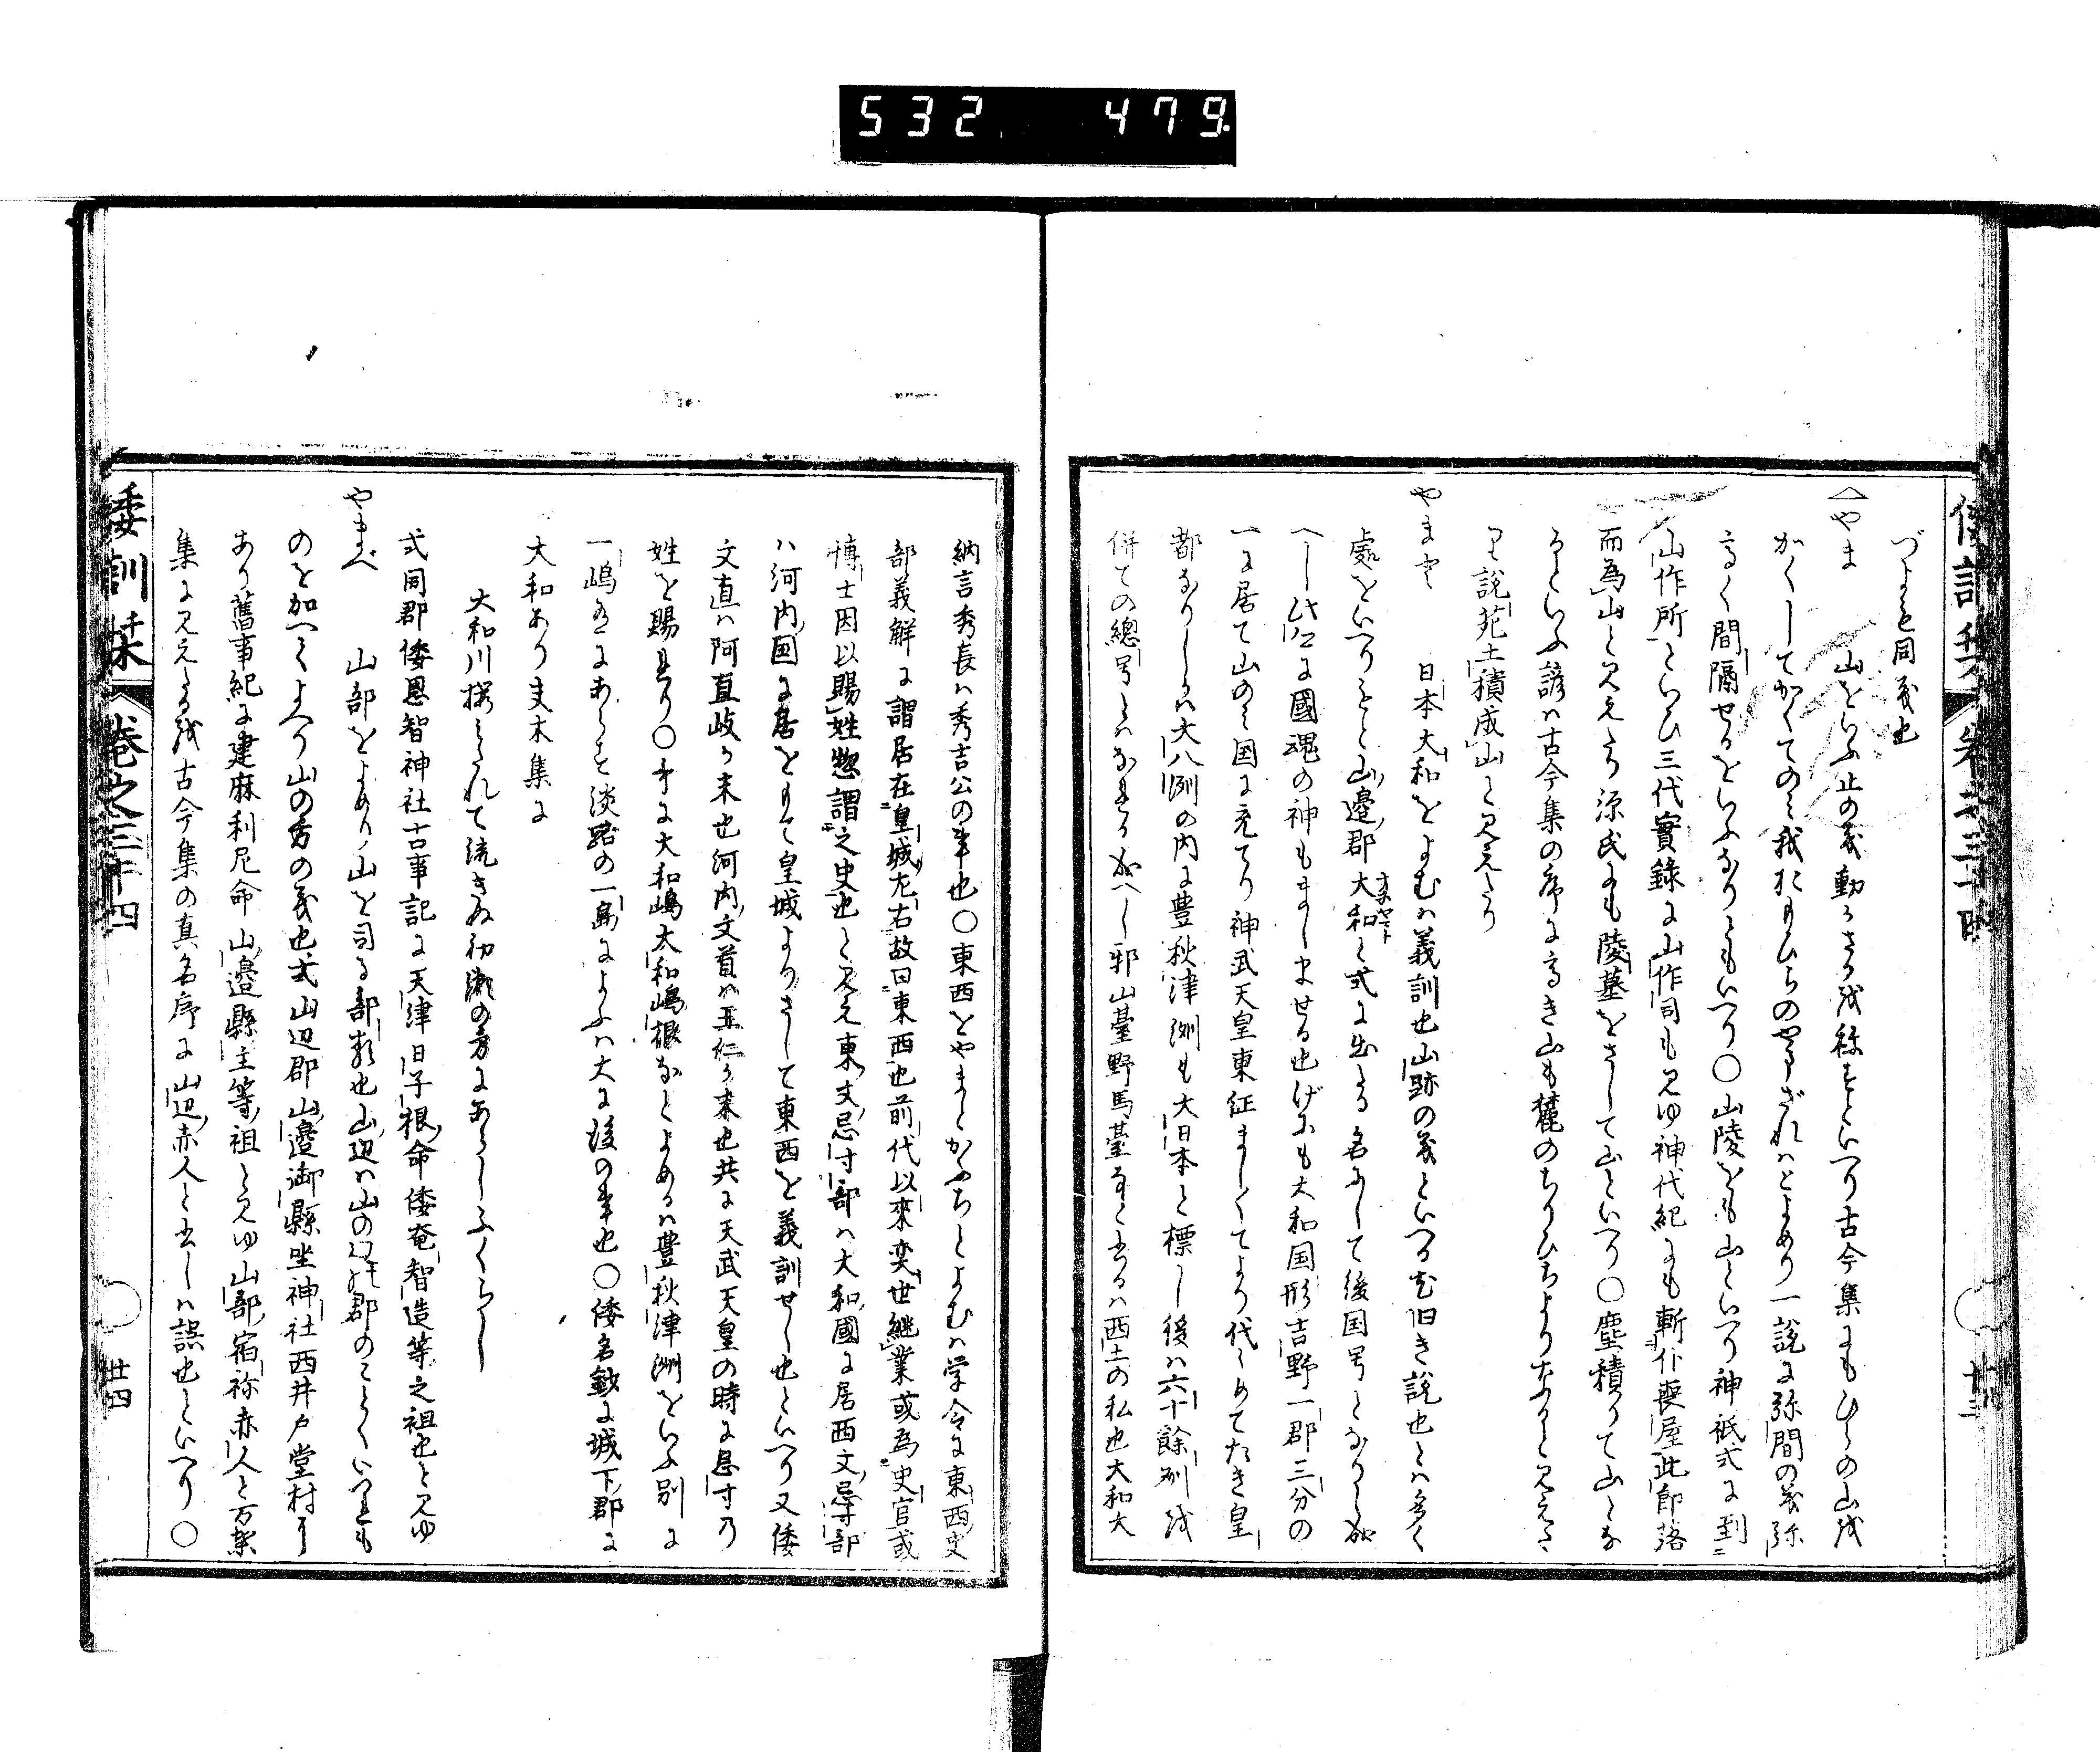 532 479
倭訓栞 巻之三十四
づよも同義也
やま 山をいふ止の義動かさるを称すといへり古今集にもひらの山を
かくしてかくてのミ我おもひらのやまざれハとよめり一説に弥間の義弥
高く間隔せるをいふなりともいへり○山陵をも山といへり神祇式に到
山作所といひ三代實錄に山作司も見ゆ神代紀にも斬仆喪屋此即落
而為山と見えたり源氏にも陵墓をさして山といへり○塵積りて山とな
るといふ諺ハ古今集の序に高き山も麓のちりひちよりなりと見えた
り説苑土積成山と見えたり
やまと 日本大和をよむハ義訓也山跡の義といへるぞ旧き説也とハ多く
處をいへりもと山邊郡大和と式に出る名にして後国号となりし成
へし此に國魂の神もましませる也げにも大和国形吉野一郡三分の
一に居て山のミ国に充てり神武天皇東征ましくてより代々めでたき皇
都なりしかハ大八洲の内に豊秋津洲も大日本と標し後ハ六十餘州を
併ての總号とハなれる成へし邪山臺野馬臺なと書るハ西土の私也大和大
納言秀長ハ秀吉公の弟也○東西をやまとかふちとよむハ学令に東西史
部義解に謂居在皇城左右故曰東西也前代以來奕世継業或為史官或
博士因以賜姓惣謂之史也と見え東文忌寸部ハ大和國に居西文忌寸部
ハ河内国に居をもて皇城よりさして東西を義訓せし也といへり又倭
文直ハ阿直岐か末也河内文首ハ王仁か末也共に天武天皇の時に忌寸の
姓を賜れり○歌に大和嶋大和嶋根なとよめるハ豊秋津洲をいふ別に
一嶋有にあらす淡路の一島によふハ大に後の事也○倭名鈔に城下郡に
大和あり夫木集に
大和川櫻ミたれて流きぬ初瀬の方にあらしふくらし
式同郡倭恩智神社古事記に天津日子根命倭奄智造等之祖也と見ゆ
やまべ 山部をよめり山を司る部類也山辺ハ山のべ郡のことくいつれも
のを加へてよへり山の方の義也式山辺郡山邊御縣坐神社西井戸堂村に
あり舊事紀に建麻利尼命山邊縣主等祖と見ゆ山部宿祢赤人と万葉
集に見えたるを古今集の真名序に山辺赤人と書しハ誤也といへり○
倭訓栞 巻之三十四 廿四